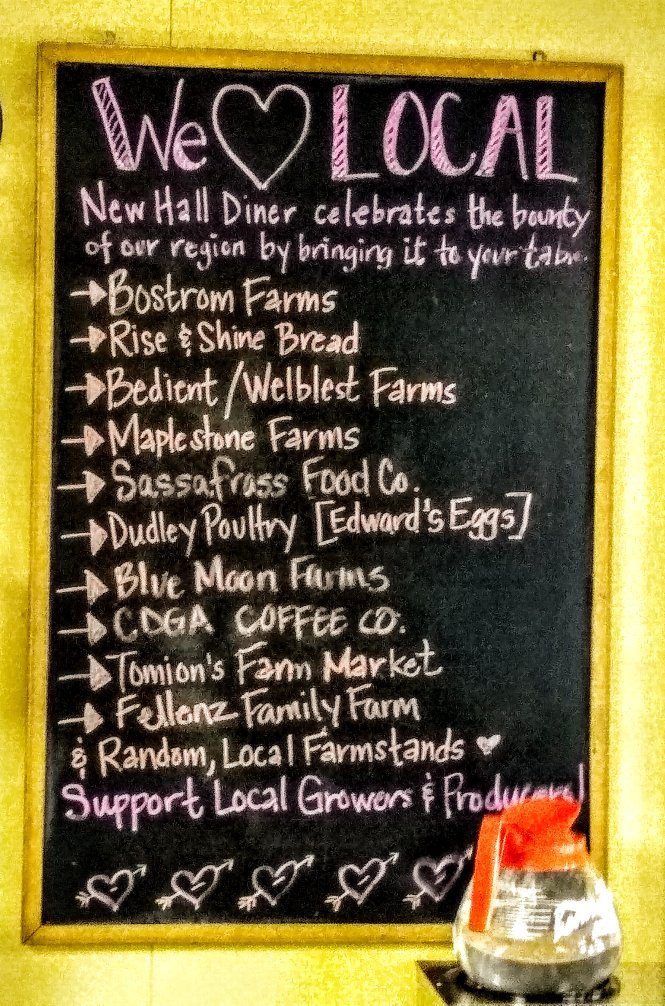 We ♡ LOCAL
New Hall Diner celebrates the bounty
of our region by bringing it to your table.
→ Bostrom Farms
→ Rise & Shine Bread
→ Bedient/Welblest Farms
→ Maplestone Farms
→ Sassafrass Food Co.
→ Dudley Poultry [Edward's Eggs]
→ Blue Moon Farms
→ COGA COFFEE CO.
→ Tomion's Farm Market
→ Fellenz Family Farm
& Random, Local Farmstands ♥
Support Local Growers & Producers!